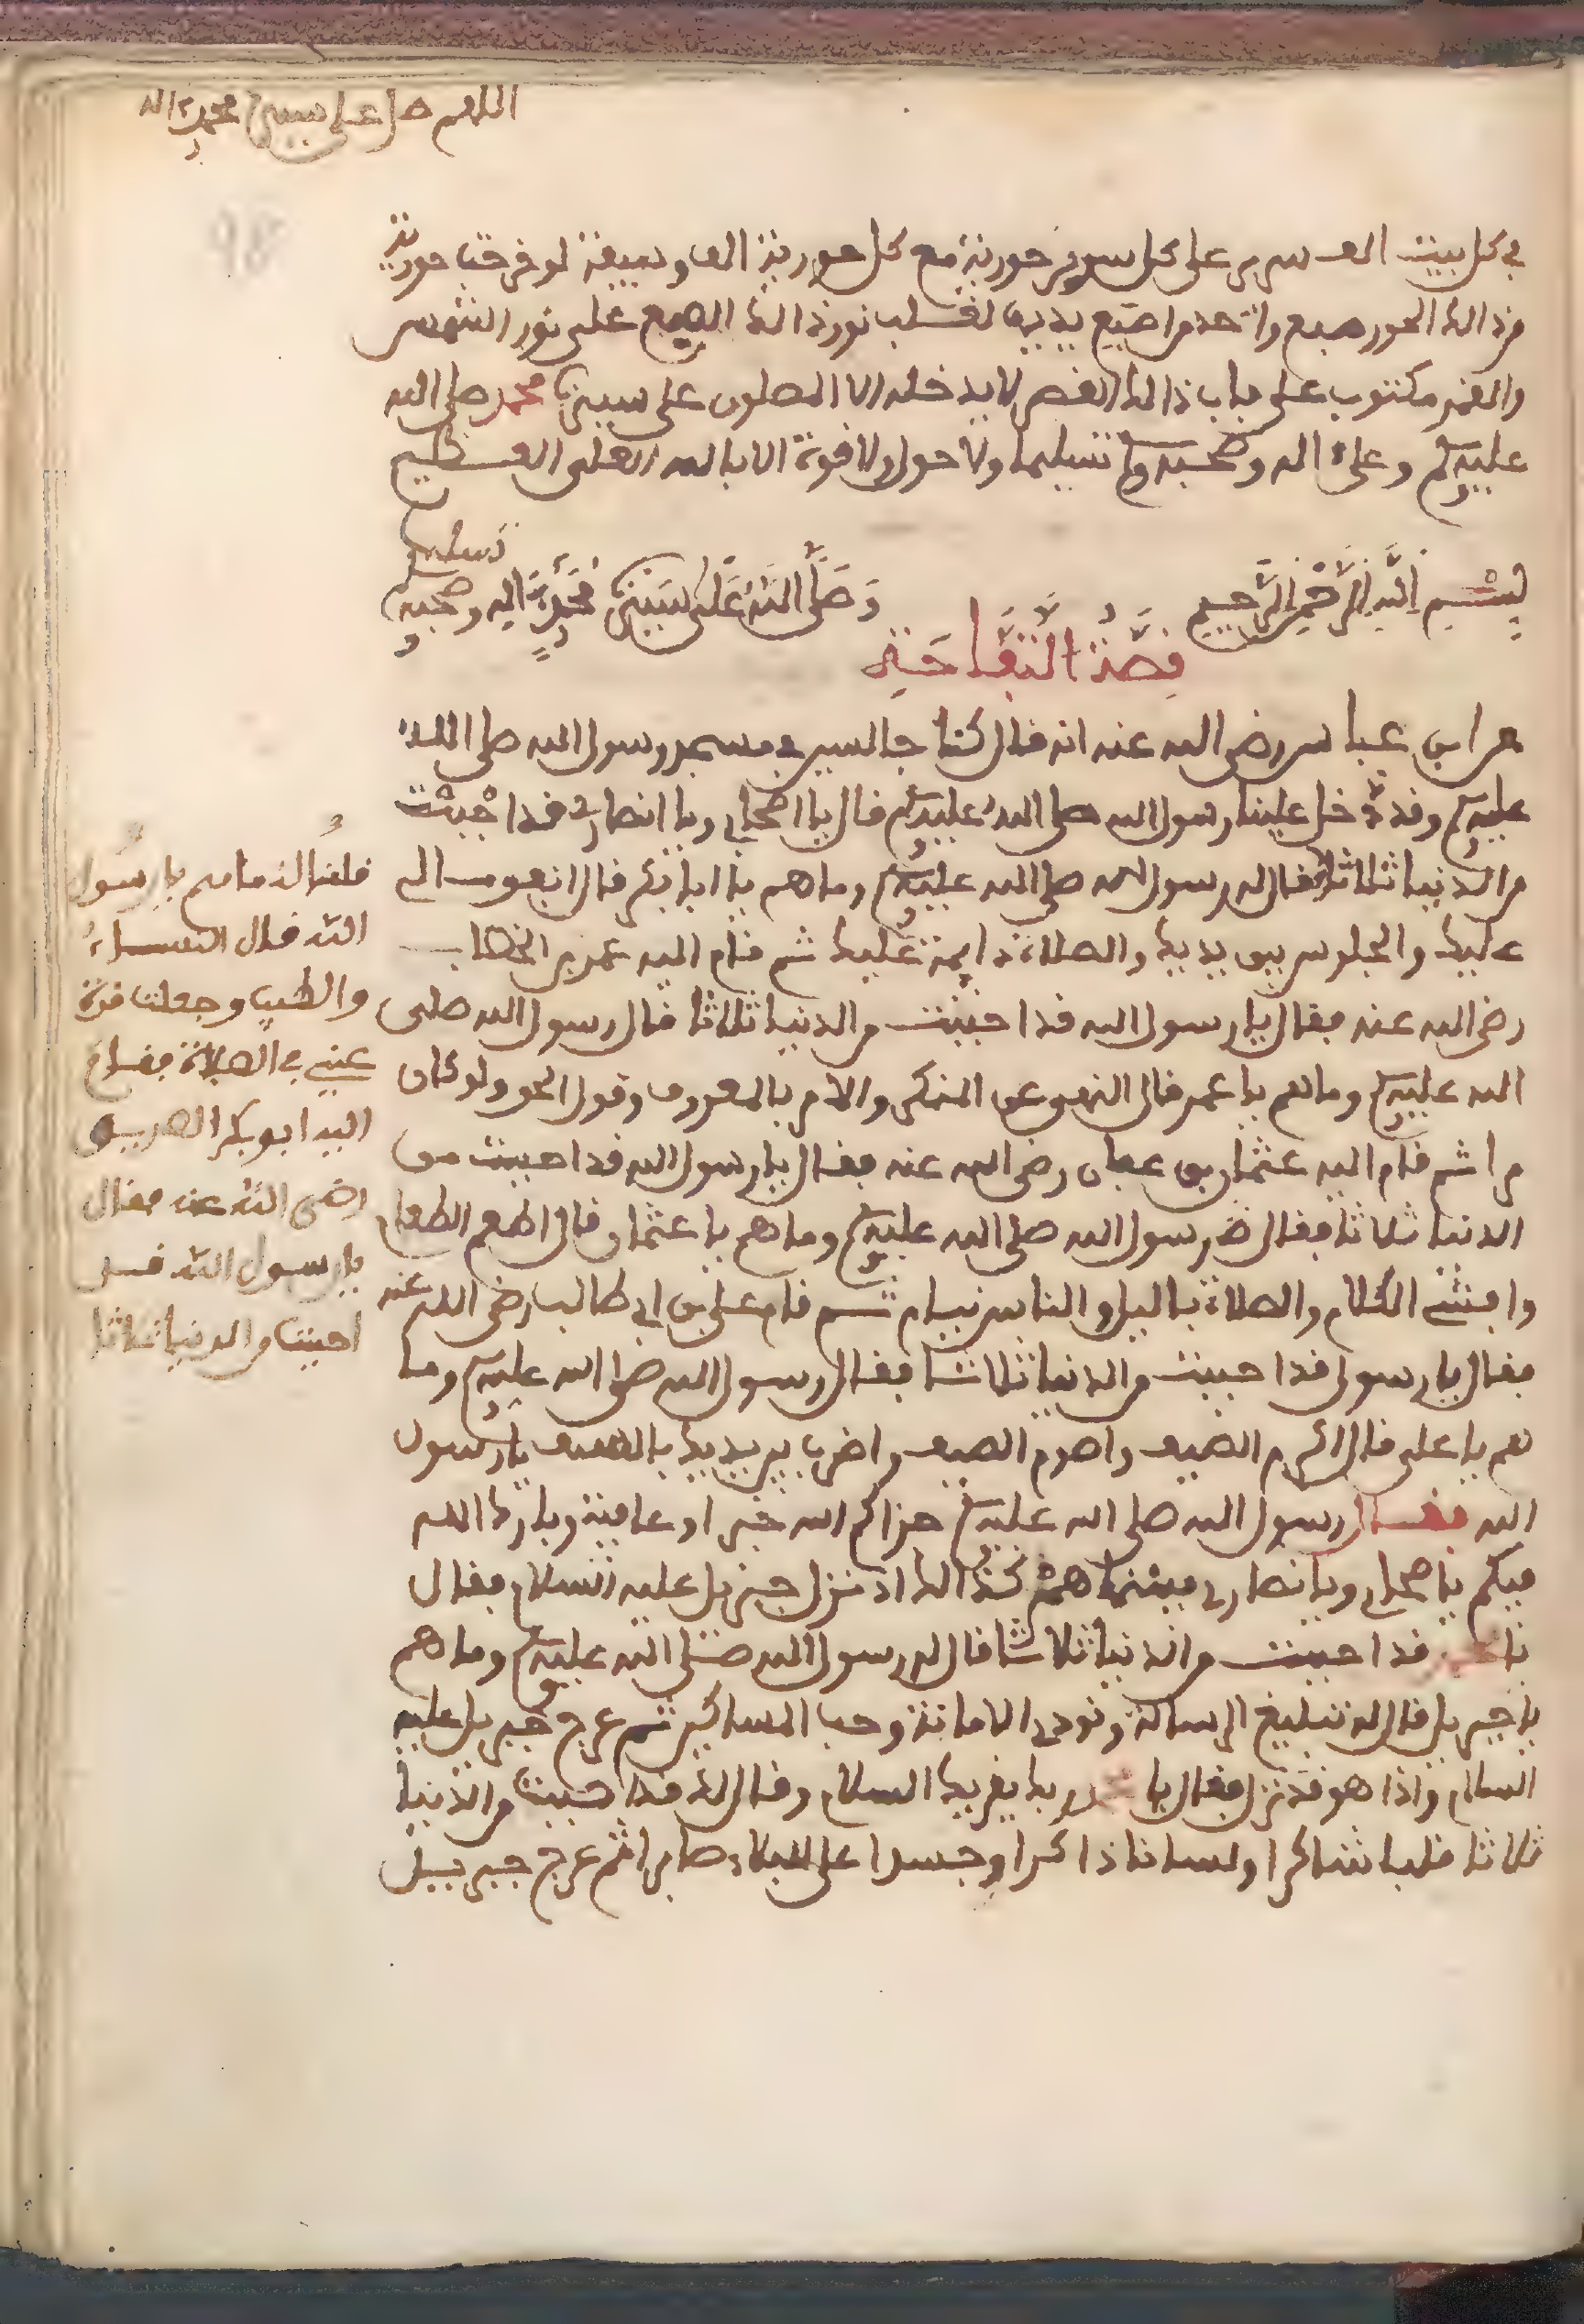 اللهم صل على سيدنا محمد واله
98
في كل بيت الف سرير على كل سرير حورية مع كل حورية الف وصيفة لو خرجت حورية
من ذالك الحور صبع واحد من اصبع يديها لغلب نور ذالك الصبع على نور الشمس
والقمر مكتوب على باب ذالك القصر لا يدخله الا المصلون على سيدنا محمد صلى الله
عليه وسلم وعلى اله وصحبه وسلم تسليما ولا حول ولا قوة الا بالله العلي العظيم
بِسْمِ اللَّهِ الرَّحْمٰنِ الرَّحِيمِ وَصَلَّى اللَّهُ عَلَى سَيِّدِنَا مُحَمَّدٍ وَآلِهِ وصحبه وسلم تسليما
قِصَّةُ التُّفَّاحَةِ
عن ابن عباس رضي الله عنه انه قال كنا جالسين في مسجد رسول الله صلى الله
عليه وسلم وقد دخل علينا رسول الله صلى الله عليه وسلم قال يا اصحابي ويا انصاري قد احببت
من الدنيا ثلاثا فقال له رسول الله صلى الله عليه وسلم وما هم يا ابا بكر قال انفق مالي
عليك والجلوس بين يديك والصلاة دايمة عليك ثم قام اليه عمر بن الخطاب
رضي الله عنه فقال يا رسول الله قد احببت من الدنيا ثلاثا قال رسول الله صلى
الله عليه وسلم وما هم يا عمر قال النهي عن المنكر والامر بالمعروف وقول الحق ولو كان
مرا ثم قام اليه عثمان بن عفان رضي الله عنه فقال يا رسول الله قد احببت من
الدنيا ثلاثا فقال رسول الله صلى الله عليه وسلم وما هم يا عثمان قال اطعم الطعام
وافشي السلام والصلاة باليل والناس نيام ثم قام علي بن ابي طالب رضي الله عنه
فقال يا رسول قد احببت من الدنيا ثلاثا فقال رسول الله صلى الله عليه وسلم وما
هم يا علي قال اكرم الضيف واصوم الصيف واضرب بين يديك بالسيف يا رسول
الله فقال رسول الله صلى الله عليه وسلم جزاكم الله خيرا وعافية وبارك الله
فيكم يا اصحابي ويا انصاري فبينما هم كذالك اذ نزل جبريل عليه السلام فقال
يا محمد قد احببت من الدنيا ثلاثا قال له رسول الله صلى الله عليه وسلم وما هم
يا جبريل قال له تبليغ الرسالة وتودي الامانة وحب المساكين ثم عرج جبريل عليه
السلام واذا هو قد نزل فقال يا محمد ربك يقريك السلام وقال لك قد احببت من الدنيا
ثلاثا قلبا شاكرا ولسانا ذاكرا وجسدا على البلاء صابرا ثم عرج جبريل
قلنا له ما هم يا رسول
الله قال النساء
والطيب وجعلت قرة
عيني في الصلاة فقام
اليه ابو بكر الصديق
رضي الله عنه فقال
يا رسول الله قد
احببت من الدنيا ثلاثا